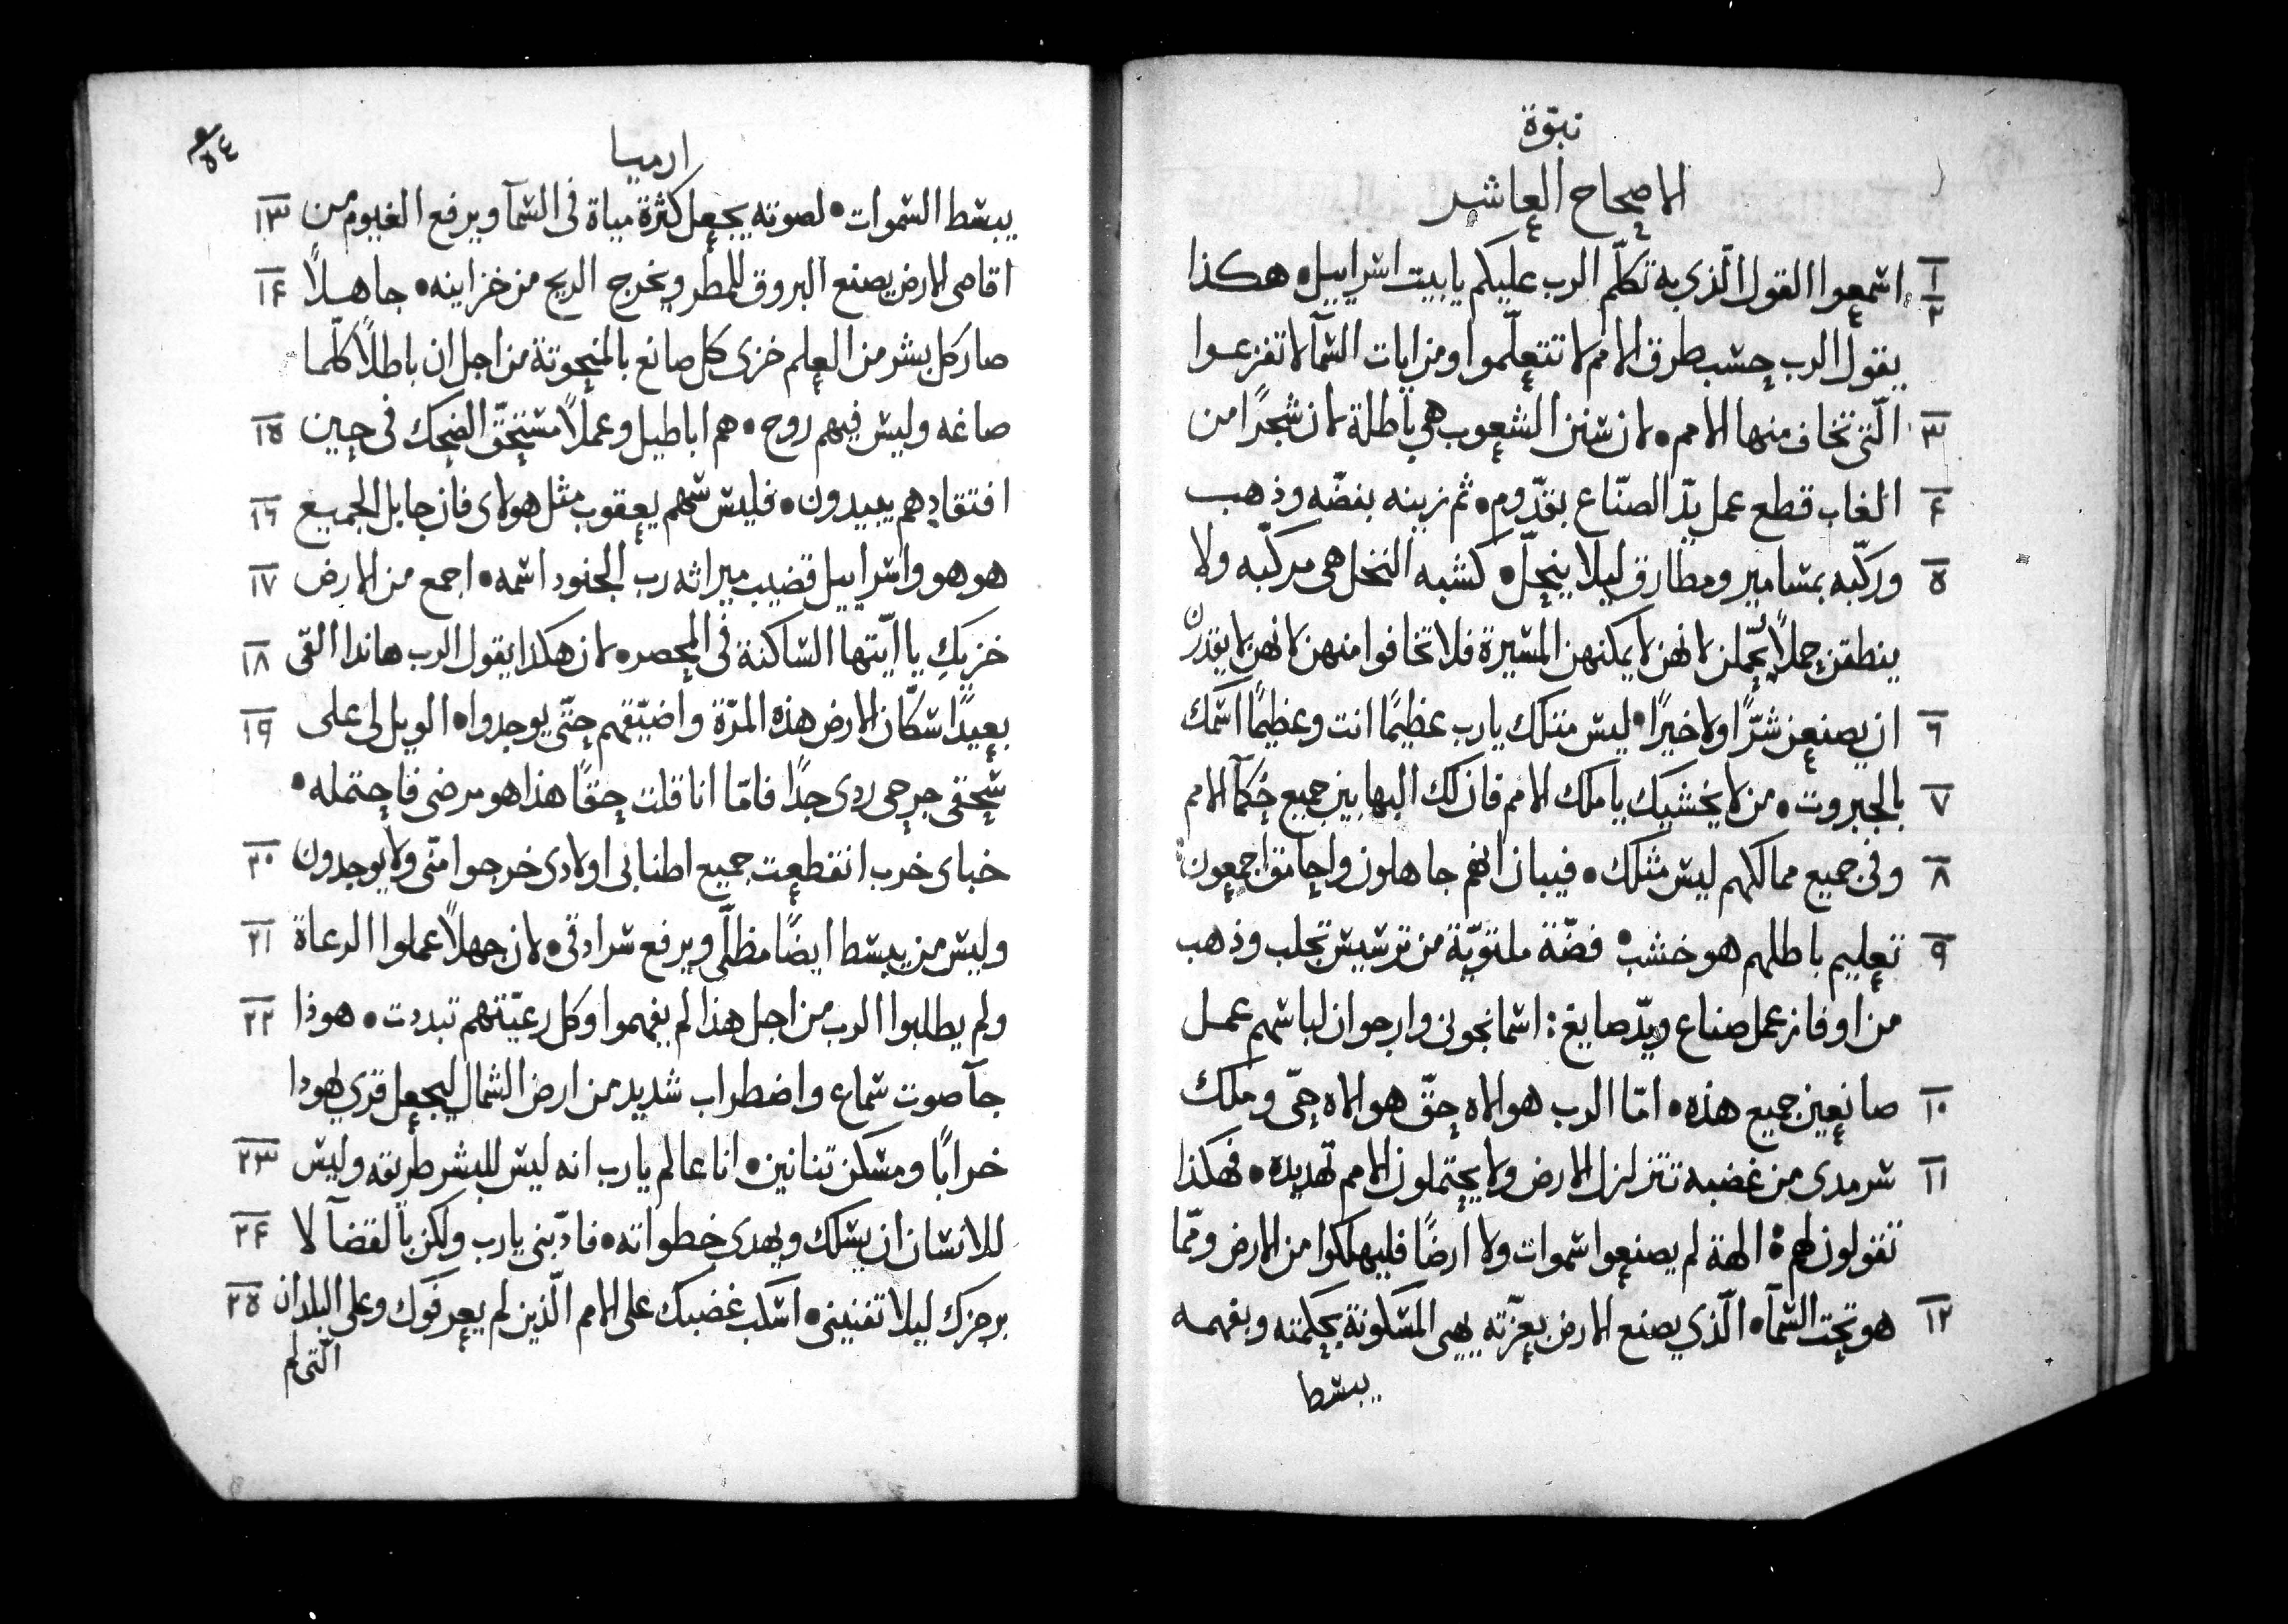 نبوّة
الاصحاح العاشر
١ ٢ اسمعوا القول الّذي به تكلّم الرب عليكم يا بيت اسراييل • هكذا
يقول الرب حسب طرق الامم لا تتعلّموا ومن ايات السّمآ لا تفزعوا
٣ الّتي تخاف منها الامم • لان سنن الشعوب هي باطلة لان شجرًا من
٤ الغاب قطع عمل يدّ الصنّاع بقدّوم • ثم زينه بفضّه وذهب
٥ وركّبه بمسامير ومطارق ليلا ينحلّ • كشبه النخل هي مركّبه ولا
ينطقن حملًا يُحملن لانهن لا يمكنهن المسيرة فلا تخافوا منهن لانهن لا يقدرن
٦ ان يصنعن شرًّا ولا خيرًا • ليس مثلك يا رب عظيمًا انت وعظيمًا اسمك
٧ بالجبروت • من لا يخشيك يا ملك الامم فان لك البها بين جميع حكمآ الامم
٨ وفي جميع ممالكهم ليس مثلك • فيبان انهم جاهلون واحامق اجمعون
٩ تعليم باطلهم هو خشب • فضّة ملتويّة من ترسيس تجلب وذهب
من اوفاز عمل صناع ويدّ صايغ : اسمانجوني وارجوان لباسهم عمل
١٠ صانعين جميع هذه • امّا الرب هو الاه حقّ هو الاه حيّ وملك
١١ سرمدي من غضبه تتزلزل الارض ولا يحتملون الامم تهديده • فهكذا
تقولون لهم : الهة لم يصنعوا سموات ولا ارضًا فليهلكوا من الارض وممّا
١٢ هو تحت السّمآ • الّذي يصنع الارض بعزّته يهيي المسكونة بحكمته وبفهمه
يبسط
٥٤
ارميا
يبسط السّموات • لصوته يجعل كثرة مياة في السّمآ ويرفع الغيوم من ١٣
اقاصي الارض يصنع البروق للمطر ويخرج الريح من خزاينه • جاهلًا ١٤
صار كل بشر من العلم خزي كل صانع بالمنحوتة من اجل ان باطلًا كلّما
صاغه وليس فيهم روح • هم اباطيل وعملًا مستحقّ الضحك في حين ١٥
افتقادهم يبيدون • فليس سهم يعقوب مثل هولاي فان جابل الجميع ١٦
هو هو واسراييل قضيب ميراثه رب الجنود اسمه • اجمع من الارض ١٧
خزيكِ يا ايّتها السّاكنة في المحصر • لان هكذا يقول الرب هاندا القي ١٨
بعيدًا سكّان الارض هذه المرّة واضيّقهم حتّي يوجدوا • الويل لي علي ١٩
سحقي جرحي ردي جدًا فامّا انا قلت حقًا هذا هو مرضي فاحتمله •
خباي خرب انقطعت جميع اطنابي اولادي خرجوا منّي ولا يوجدون ٢٠
وليس من يبسط ايضًا مظلّي ويرفع سرادقي • لان جهلًا عملوا الرعاة ٢١
ولم يطلبوا الرب من اجل هذا لم يفهموا وكل رعيّتهم تبددت • هوذا ٢٢
جآ صوت سماع واضطراب شديد من ارض الشمال ليجعل قري يهودا
خرابًا ومسكن تنانين • انا عالم يا رب انه ليس للبشر طريقه وليس ٢٣
للانسان ان يسلك ويهدي خطواته • فادّبني يا رب ولكن بالقضآ لا ٢٤
برجزك ليلا تفنيني • اسكب غضبك علي الامم الّذين لم يعرفوك وعلي البلدان ٢٥
الّتي لم